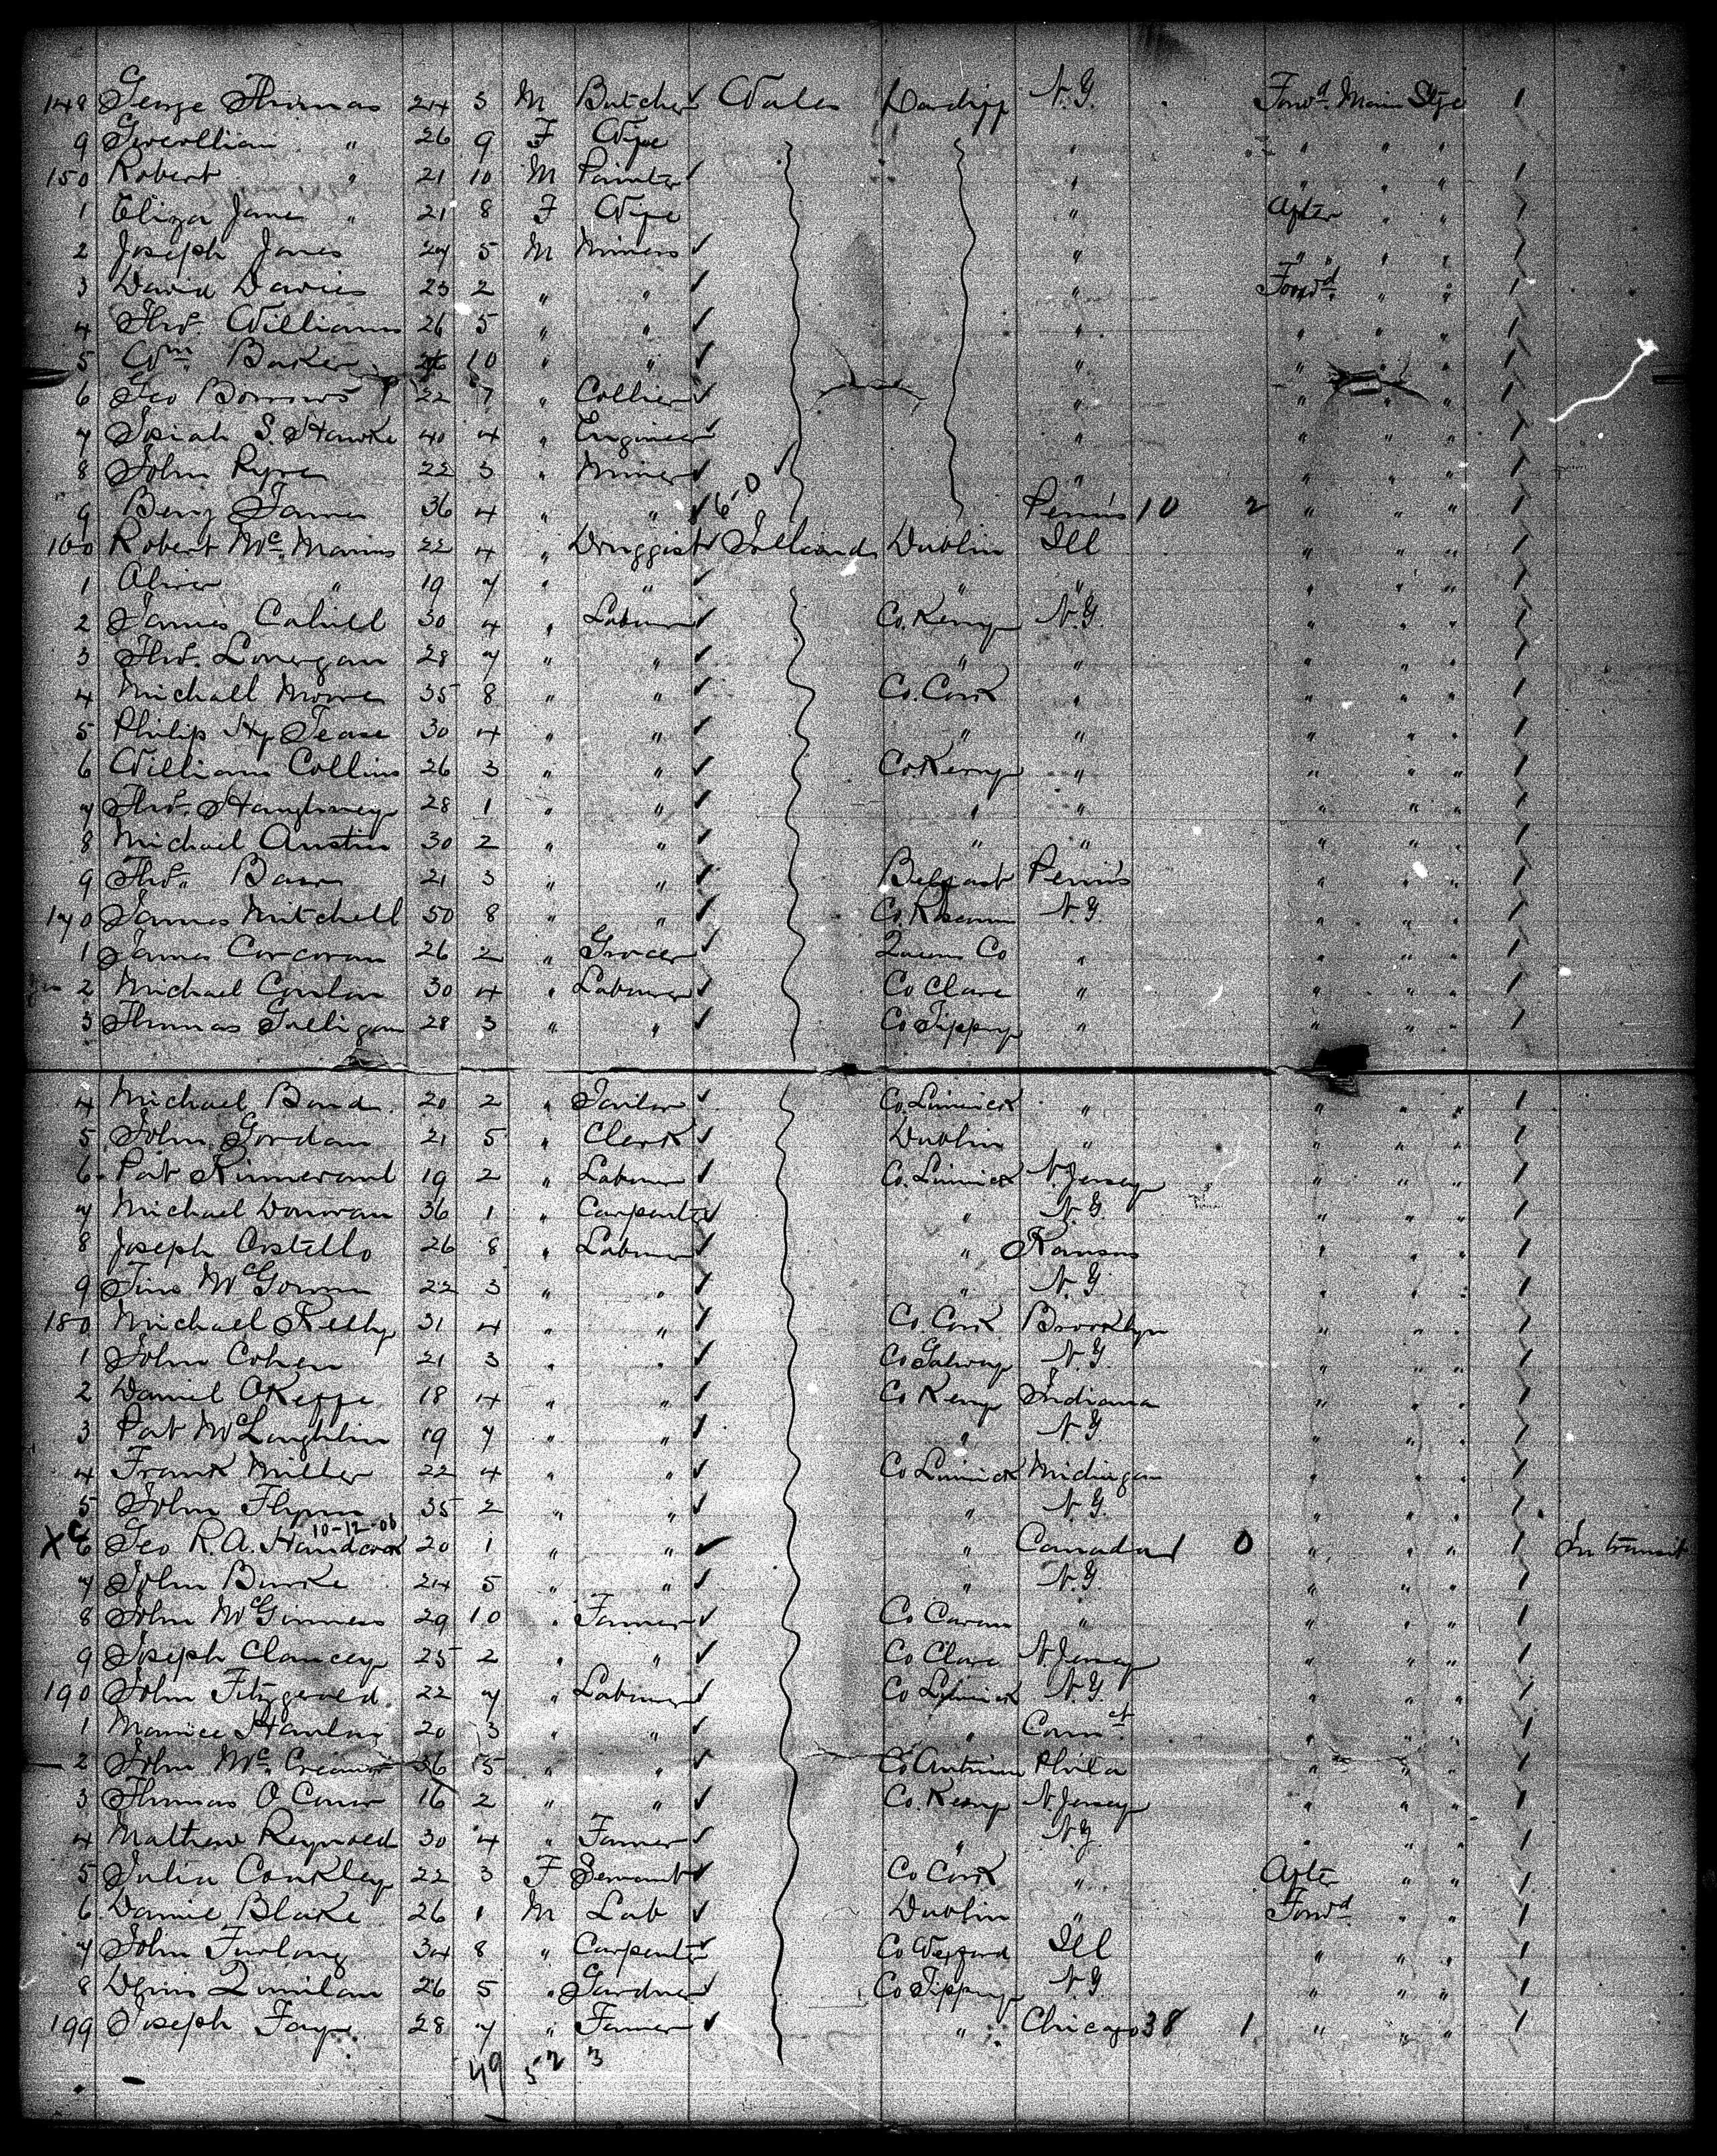 148 George Thomas 24 3 M Butcher ✓ Wales Cardiff N.Y. Forwd Main Stge 1
9 " 26 9 F Wife " " " "
150 Robert " 21 10 M Painter ✓ " " " " 1
1 Eliza Jane " 21 8 F Wife " After " " 1
2 Joseph Jones 24 5 M Miners ✓ " " " " 1
3 David Davies 23 2 " " ✓ " Forwd " " 1
4 Thos. Williams 26 5 " " ✓ " " " " 1
5 Wm Baker 26 10 " " ✓ " " " " 1
6 Geo Borrows 22 7 " Collier ✓ " " " " 1
7 S. Hawke 40 4 " Engineer ✓ " " " " 1
8 John 22 3 " Miner ✓ " " " " 1
9 Benj James 36 4 " " ✓ 6-0 Penns 10 2 " " " 1
160 Robert Mc. Manus 22 4 " Druggist ✓ Ireland Dublin Ill " " " 1
1 Oliver " 19 7 " " ✓ " " " " " 1
2 James Cahill 30 4 " Labourer ✓ Co. Kerry N.Y. " " " 1
3 Thos. Lonergan 28 7 " " ✓ " " " " " 1
4 Michall Moore 35 8 " " ✓ Co. Cork " " " " 1
5 Philip Hy Tease 30 4 " " ✓ " " " " " 1
6 William Collins 26 3 " " ✓ Co. Kerry " " " " 1
7 Thos. Haughney 28 1 " " ✓ " " " " " 1
8 Michael Austin 30 2 " " ✓ " " " " " 1
9 Thos. 21 3 " " ✓ Belfast Penns " " " 1
170 James Mitchell 50 8 " " ✓ Co. N.Y. " " " 1
1 James Corcoran 26 2 " Grocer ✓ Queens Co " " " " 1
2 Michael Conlon 30 4 " Labourer ✓ Co Clare " " " " 1
3 Thomas Galligan 28 3 " " ✓ Co Tippry " " " " 1
4 Michael Bond 20 2 " Tailor ✓ Co. Limrick " " " " 1
5 John Jordan 21 5 " Clerk ✓ Dublin " " " " 1
6 Pat 19 2 " Labour ✓ Co. Limrick N. Jersey " " " 1
7 Michael Donovan 36 1 " Carpenter ✓ " N.Y. " " " 1
8 Joseph Costello 26 8 " Labourer ✓ " Kansas " " " 1
9 McGowan 22 3 " " ✓ " N.Y. " " " 1
180 Michael Kelly 31 4 " " ✓ Co. Cork Brooklyn " " " 1
1 John Cohen 21 3 " " ✓ Co Galway N.Y. " " " 1
2 Daniel OKeffe 18 4 " " ✓ Co Kerry Indiana " " " 1
3 Pat McLaughlin 19 7 " " ✓ " N.Y. " " " 1
4 Frank Miller 22 4 " " ✓ Co Limrick Michigan " " " 1
5 John Flynn 35 2 " " ✓ " N.Y. " " " 1
10-12-06
X 6 Geo R.A. Handcock 20 1 " " ✓ " Canada 1 0 " " " 1 In transit
7 John Burke 24 5 " " ✓ " N.Y. " " " 1
8 John McGinness 29 10 " Farmer ✓ Co Cavan " " " " 1
9 Joseph Clancey 25 2 " " ✓ Co Clare N. Jersey " " " 1
190 John Fitzgerald 22 7 " Labourer ✓ Co Limrick N.Y. " " " 1
1 Maurice Hanlon 20 3 " " ✓ " Connct. " " " 1
2 John Mc. 36 5 " " ✓ Co Antrim Phila " " " 1
3 Thomas O Conor 16 2 " " ✓ Co. Kerry N. Jersey " " " 1
4 Mathew Reynold 30 4 " Farmer ✓ " N.Y. " " " 1
5 Julia Conkley 22 3 F Servant ✓ Co Cork " After " " 1
6 Dannie Blake 26 1 M Lab ✓ Dublin " Forwd " " 1
7 John Furlong 34 8 " Carpenter ✓ Co Wexford Ill " " " 1
8 Denis Quinlan 26 5 " Gardner ✓ Co Tippry N.Y. " " " 1
199 Joseph Faye 28 7 " Farmer ✓ " Chicago 38 1 " " " 1
49 52 3